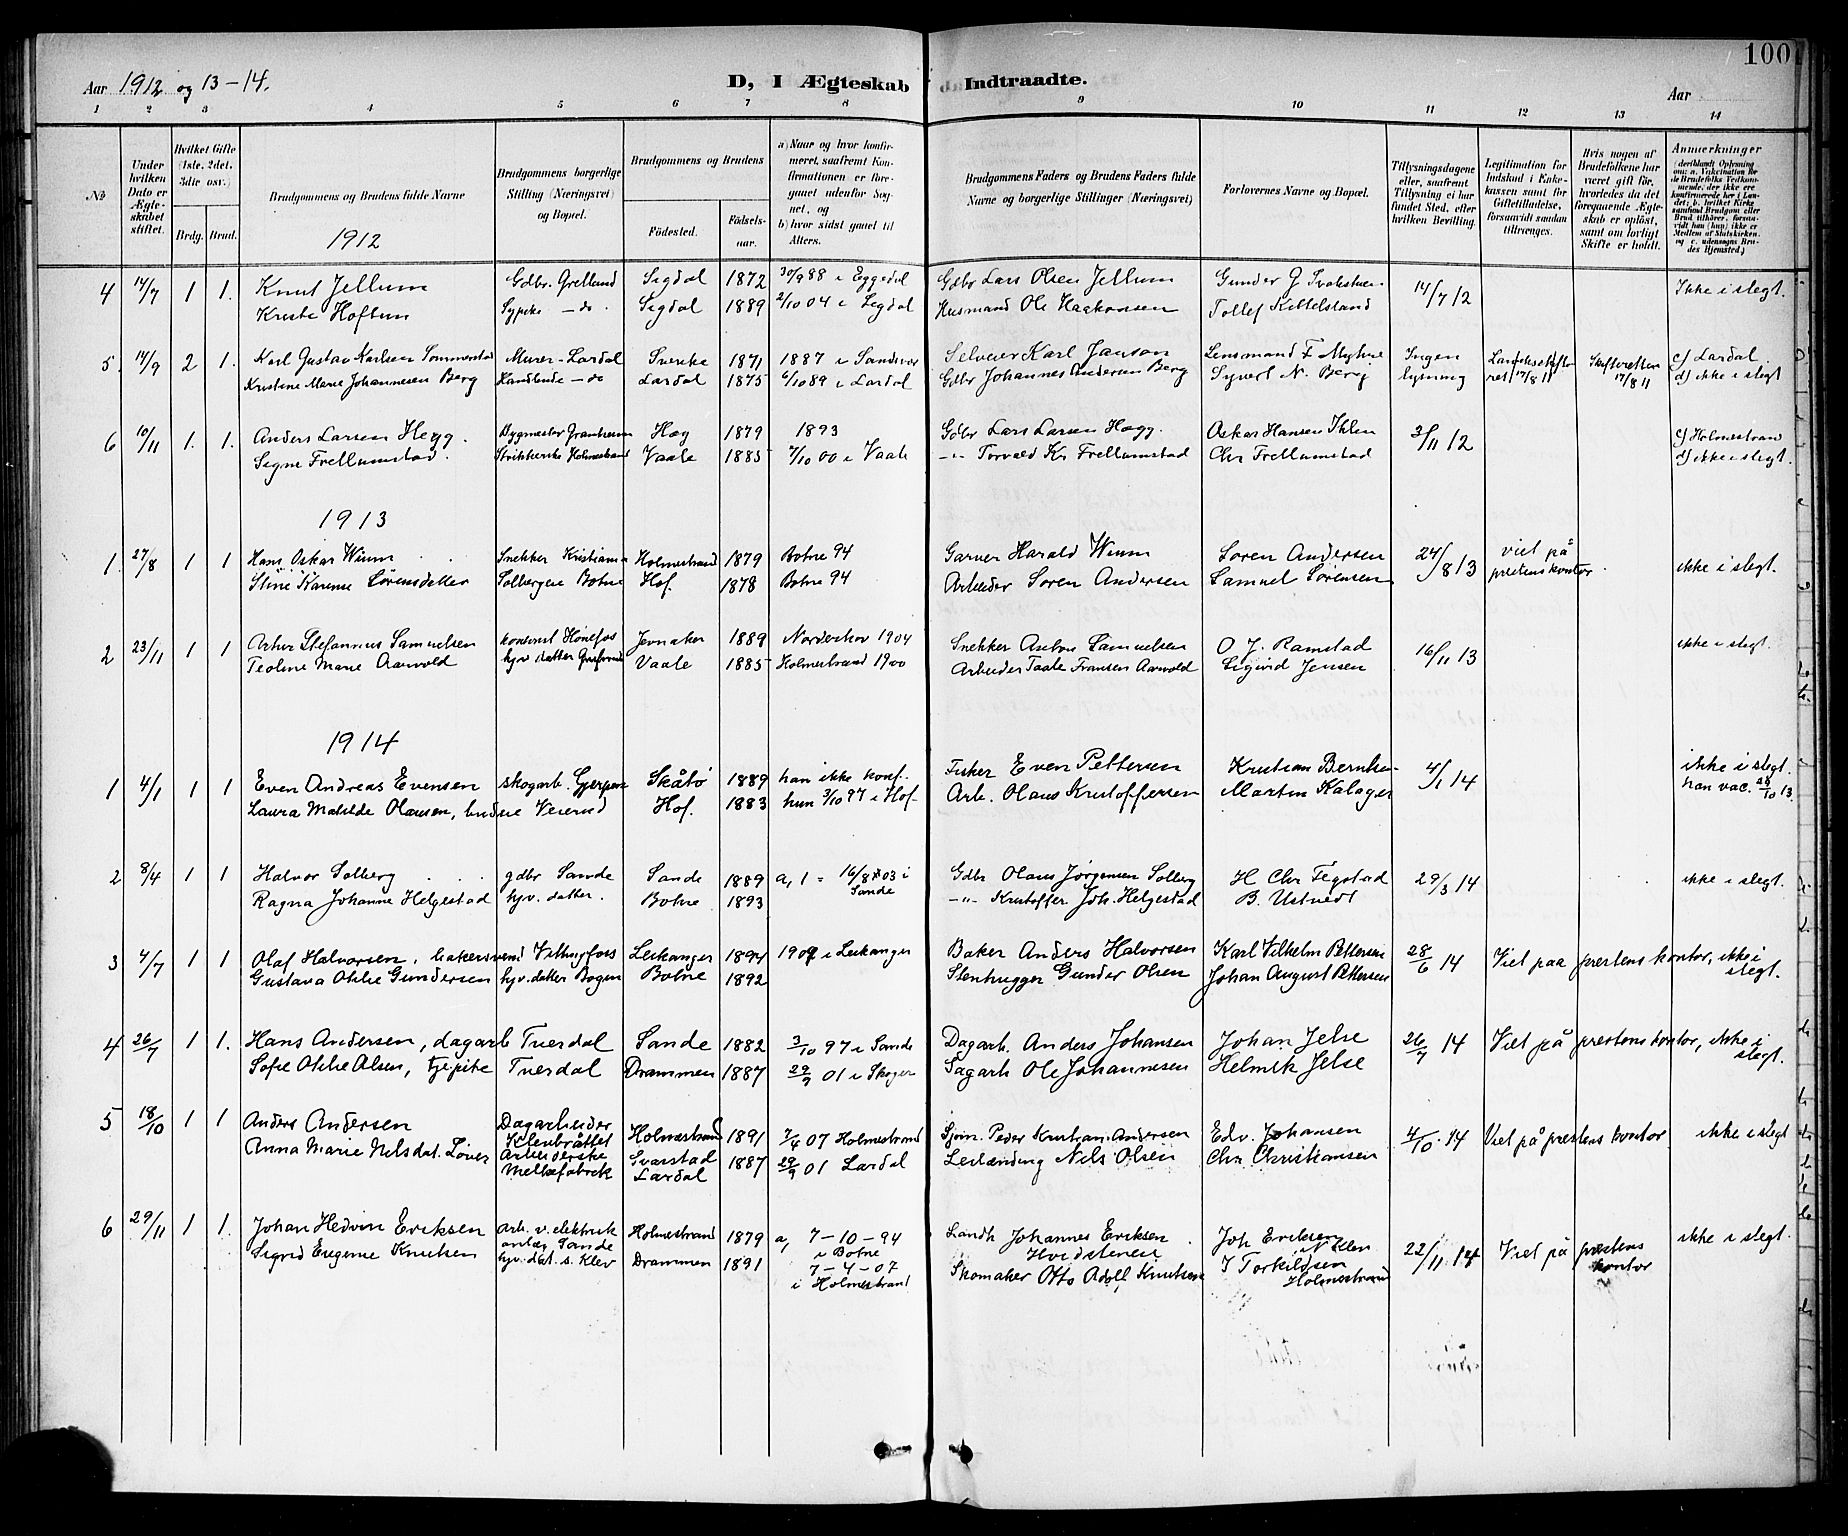 Aar 1912 og 13-14.
D, I Ægteskab Indtraadte.
Aar
100
1 2 3 4 5 6 7 8 9 10 11 12 13 14
No
Under hvilken Dato er Ægteskabet stiftet.
Hvilket Gifte (1ste, 2det, 3die osv.)
Brdg. Brud.
Brudgommens og Brudens fulde Navne
Brudgommens borgerlige Stilling (Næringsvei) og Bopæl.
Brudgommens og Brudens
Fødested. Fødselsaar.
a) Naar og hvor konfirmeret, saafremt Konfirmationen er foregaaet udenfor Sognet, og
b) hvor sidst gaaet til Alters.
Brudgommens Faders og Brudens Faders fulde Navne og borgerlige Stillinger (Næringsvei)
Forlovernes Navne og Bopæl.
Tillysningsdagene eller, saafremt Tillysning ei har fundet Sted, efter hvilken Bevilling.
Legitimation for Indskud i Enkekassen samt for Giftetilladelse, forsaavidt saadan tiltrænges.
Hvis nogen af Brudefolkene har været gift før, hvorledes da det foregaaende Ægteskab er opløst, samt om lovligt Skifte er holdt.
Anmerkninger
1912
4 14/7 1 1. Knut Jellum Gdbr. Grellund Sigdal 1872 30/9 88 i Eggedal Gdbr Lars Olsen Jellum Gunder G 14/7 12 Ikke i slegt.
Kriste Hoftun Sypike - do - Sigdal 1889 2/10 04 i Sigdal Husmand Ole Haakonsen Tollef Kittelstand
5. 14/9 2 1. Karl Gustav Karlsen Sommerstad Murer - Lardal Sverike 1871 1887 i Sandsvær Selveier Karl Janson Lensmand F. Myhre Ingen lysning 17/8 11 Skifteretten 17/8 11 c) Lardal.
Kristine Marie Johannesen Berg Handlende - do Lardal 1875 6/10 89 i Lardal Gdbr Johannes Andersen Berg Syvert N. Berg d) ikke i slegt
6 10/11 1. 1. Anders Larsen Hegg. Bygmester Hæg 1879 1893 Gdbr Lars Larsen Hægg. Oskar Hansen Ihlen 3/11 12 c) Holmestrand
Signe Frellumstad. Strikkerske Holmestrand Vaale 1885 7/10 00 i Vaale -"- Torvald Kr Frellumstad Chr Frellumstad d) ikke i slegt.
1913
1. 27/8 1 1 Hans Oskar Wium Snekker Kristiania Holmestrand 1879 Botne 94 Garver Harald Wium Søren Andersen 24/8 13 viet på prestens kontor ikke i slegt.
Stine Karine Sørensdatter Solbergene Botne Hof. 1878 Botne 94 Arbeider Søren Andersen Samuel Sørensen
2 23/11 1 1 Artur Stefannus Samuelsen Hønefos Jevnaker 1889 Norderhov 1904 Snekker Anton Samuelsen O. J. Ramstad 16/11 13 ikke i slegt.
Teoline Marie Aarvold hjv. datter Vaale 1885 Holmestrand 1900 Arbeider Taale Fransen Aarvold Sigurd Jensen
1914
1 4/1 1 1 Even Andreas Evensen skogarb. Gjerpen Skåtø 1889 han ikke konf. Fisker Even Pettersen Kristian Berntsen 4/1 14 ikke i slegt.
Laura Matilde Olausen, budeie Veierud Hof. 1883 hun 3/10 97 i Hof. Arb. Olaus Kristoffersen Martin Kalager han vac. 28/10 13
2 8/4 1 1 Halvor Solberg gdbr Sande Sande 1889 a, 1 = 16/8 03 i Sande Gdbr Olaus Jørgensen Solberg H. Chr Tegstad 29/3 14 ikke i slegt.
Ragna Johanne Helgestad hjv. datter. Botne 1893 -"- Kristoffer Joh. Helgestad B. Ustvedt
3 4/7 1 1 Olaf Halvorsen, bakersvend Vittingfoss Leikanger 1894 1909 i Leikanger Baker Anders Halvorsen Karl Vilhelm Pettersen 28/6 14 Viet paa prestens kontor, ikke i slegt.
Gustava Othie Gundersen hjv. datter Bogen Botne 1892 Stenhugger Gunder Olsen Johan August Pettersen
4 26/7 1 1. Hans Andersen, dagarb Tuerdal Sande 1882 3/10 97 i Sande Dagarb. Anders Johansen Johan Jelse 26/7 14 Viet på prestens kontor, ikke i slegt.
Sofie Othie Olsen, tjepike Tuerdal Drammen 1887 29/9 01 i Skoger Sagarb Ole Johannesen Helmik Jelse
5 18/10 1 1 Anders Andersen Dagarbeider Klenbråttet Holmestrand 1891 7/4 07 Holmestrand Sjøm. Peder Kristian Andersen Edv. Johansen 4/10. 14 Viet på prestens kontor ikke i slegt
Anna Marie Nilsdat. Løver Arbeiderske Melkefabrik Svarstad Lardal 1887 29/9 01 Lardal Leilænding Nils Olsen Chr Christiansen
6 29/11 1 1. Johan Hedvin Eriksen Arb. v. elektrisk anlæg Sande Holmestrand 1879 a, 7-10-94 i Botne Landh Johannes Eriksen Hvidstenen Joh Eriksen N Klev 22/11. 14 Viet på prestens kontor ikke i slegt.
Sigrid Eugenie Knutsen hjv. dat. s. Klev Drammen 1891 7-4-07 i Holmestrand Skomaker Otto Adolf Knutsen T Torkildsen Holmestrand